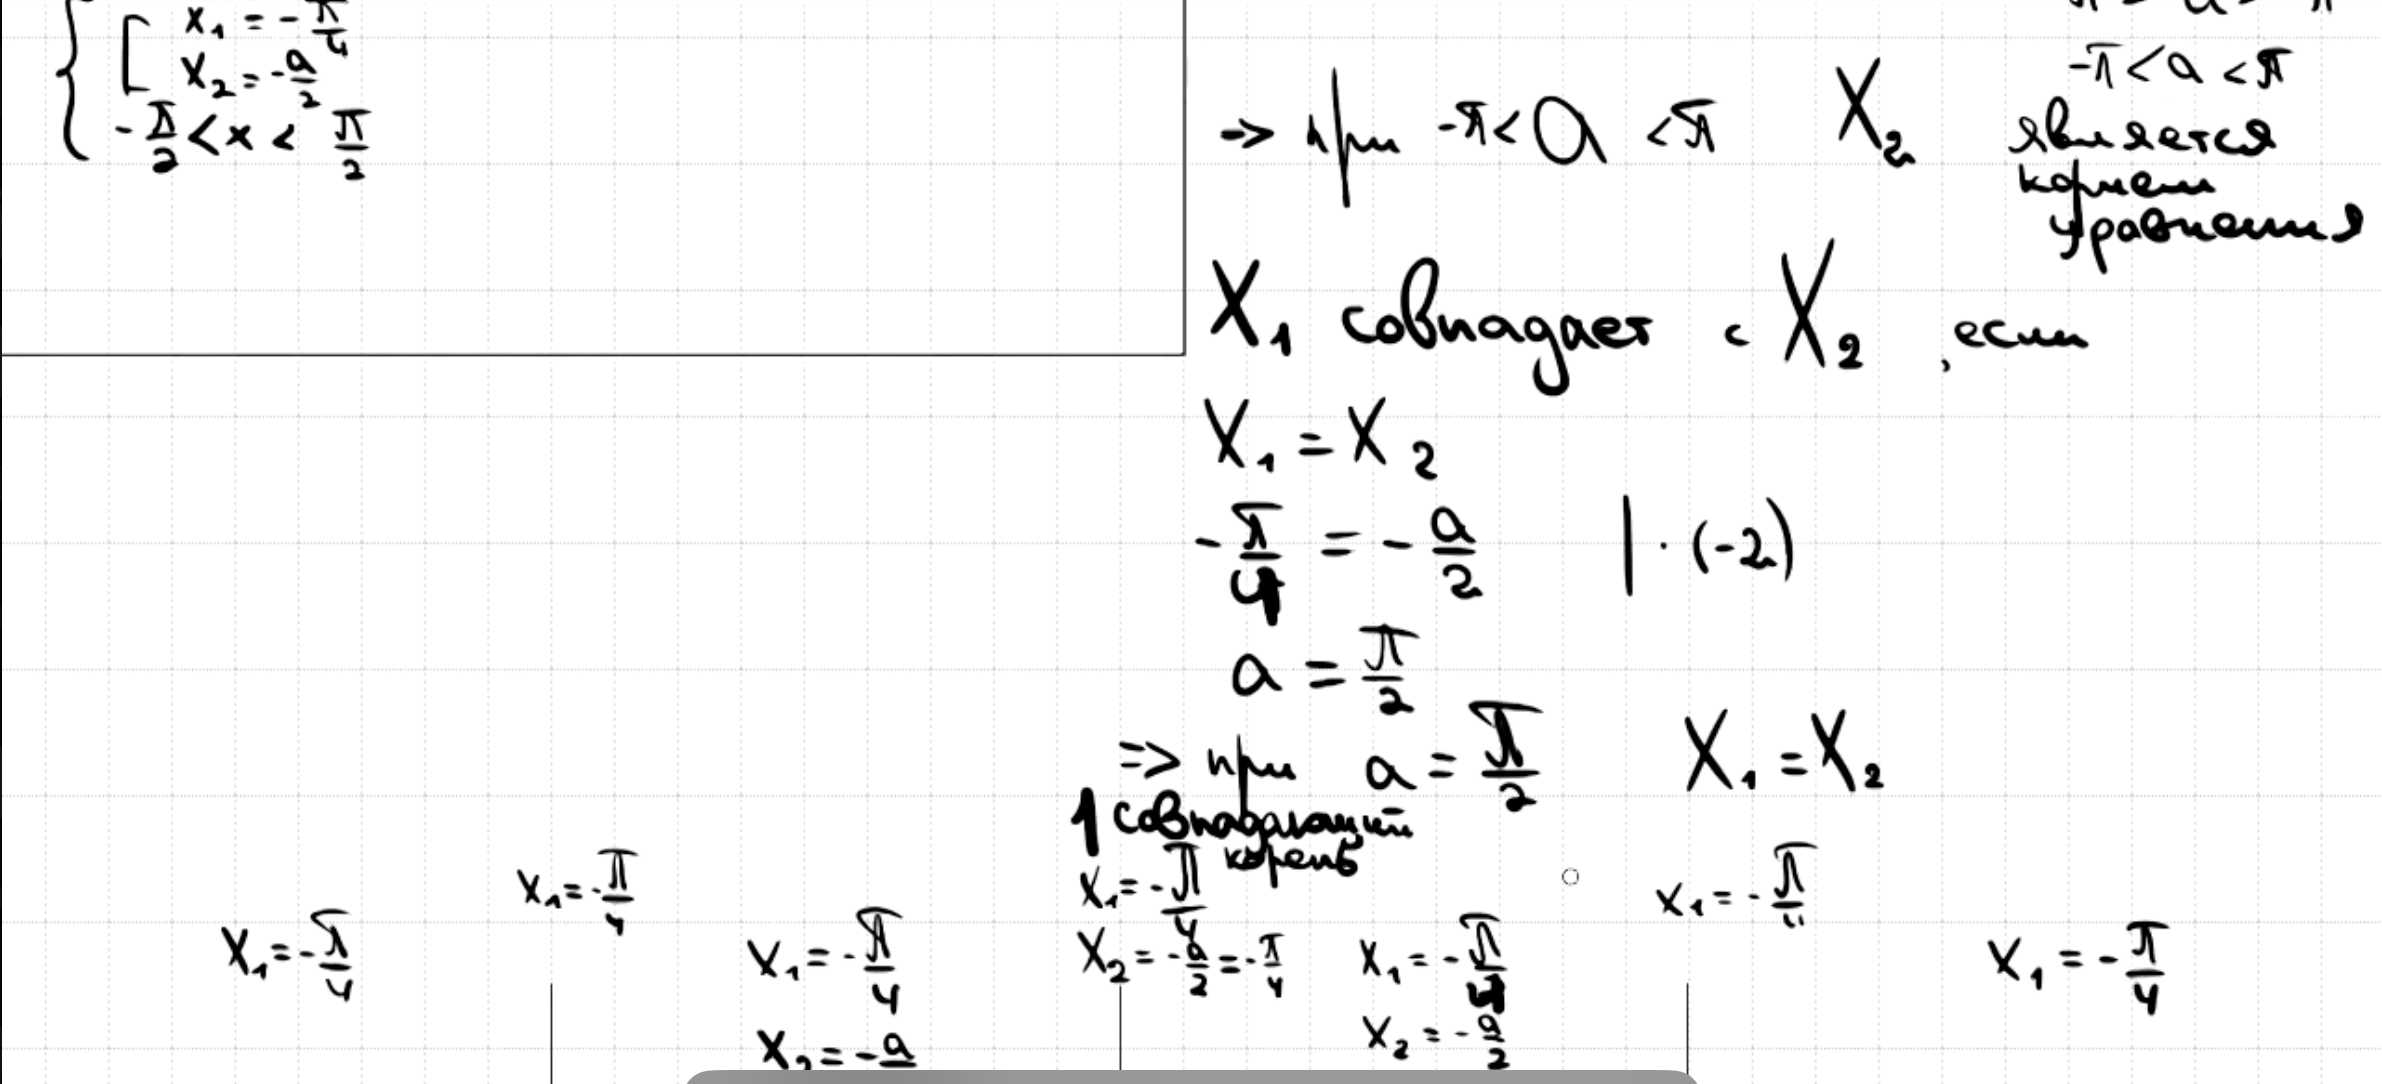 x₁ = -π/4
x₂ = -a/2
-π/2 < x < π/2
-π < a < π
⇒ при -π < a < π x₂ является
корнем
уравнения
x₁ совпадает с x₂, если
x₁ = x₂
-π/4 = -a/2 | · (-2)
a = π/2
⇒ при a = π/2 x₁ = x₂
1 совпадающий
корень
x₁ = -π/4
x₁ = -π/4
x₁ = -π/4
x₂ = -a
x₁ = -π/4
x₂ = -a/2 = -π/4
x₁ = -π/4
x₂ = -a/2
x₁ = -π/4
x₁ = -π/4